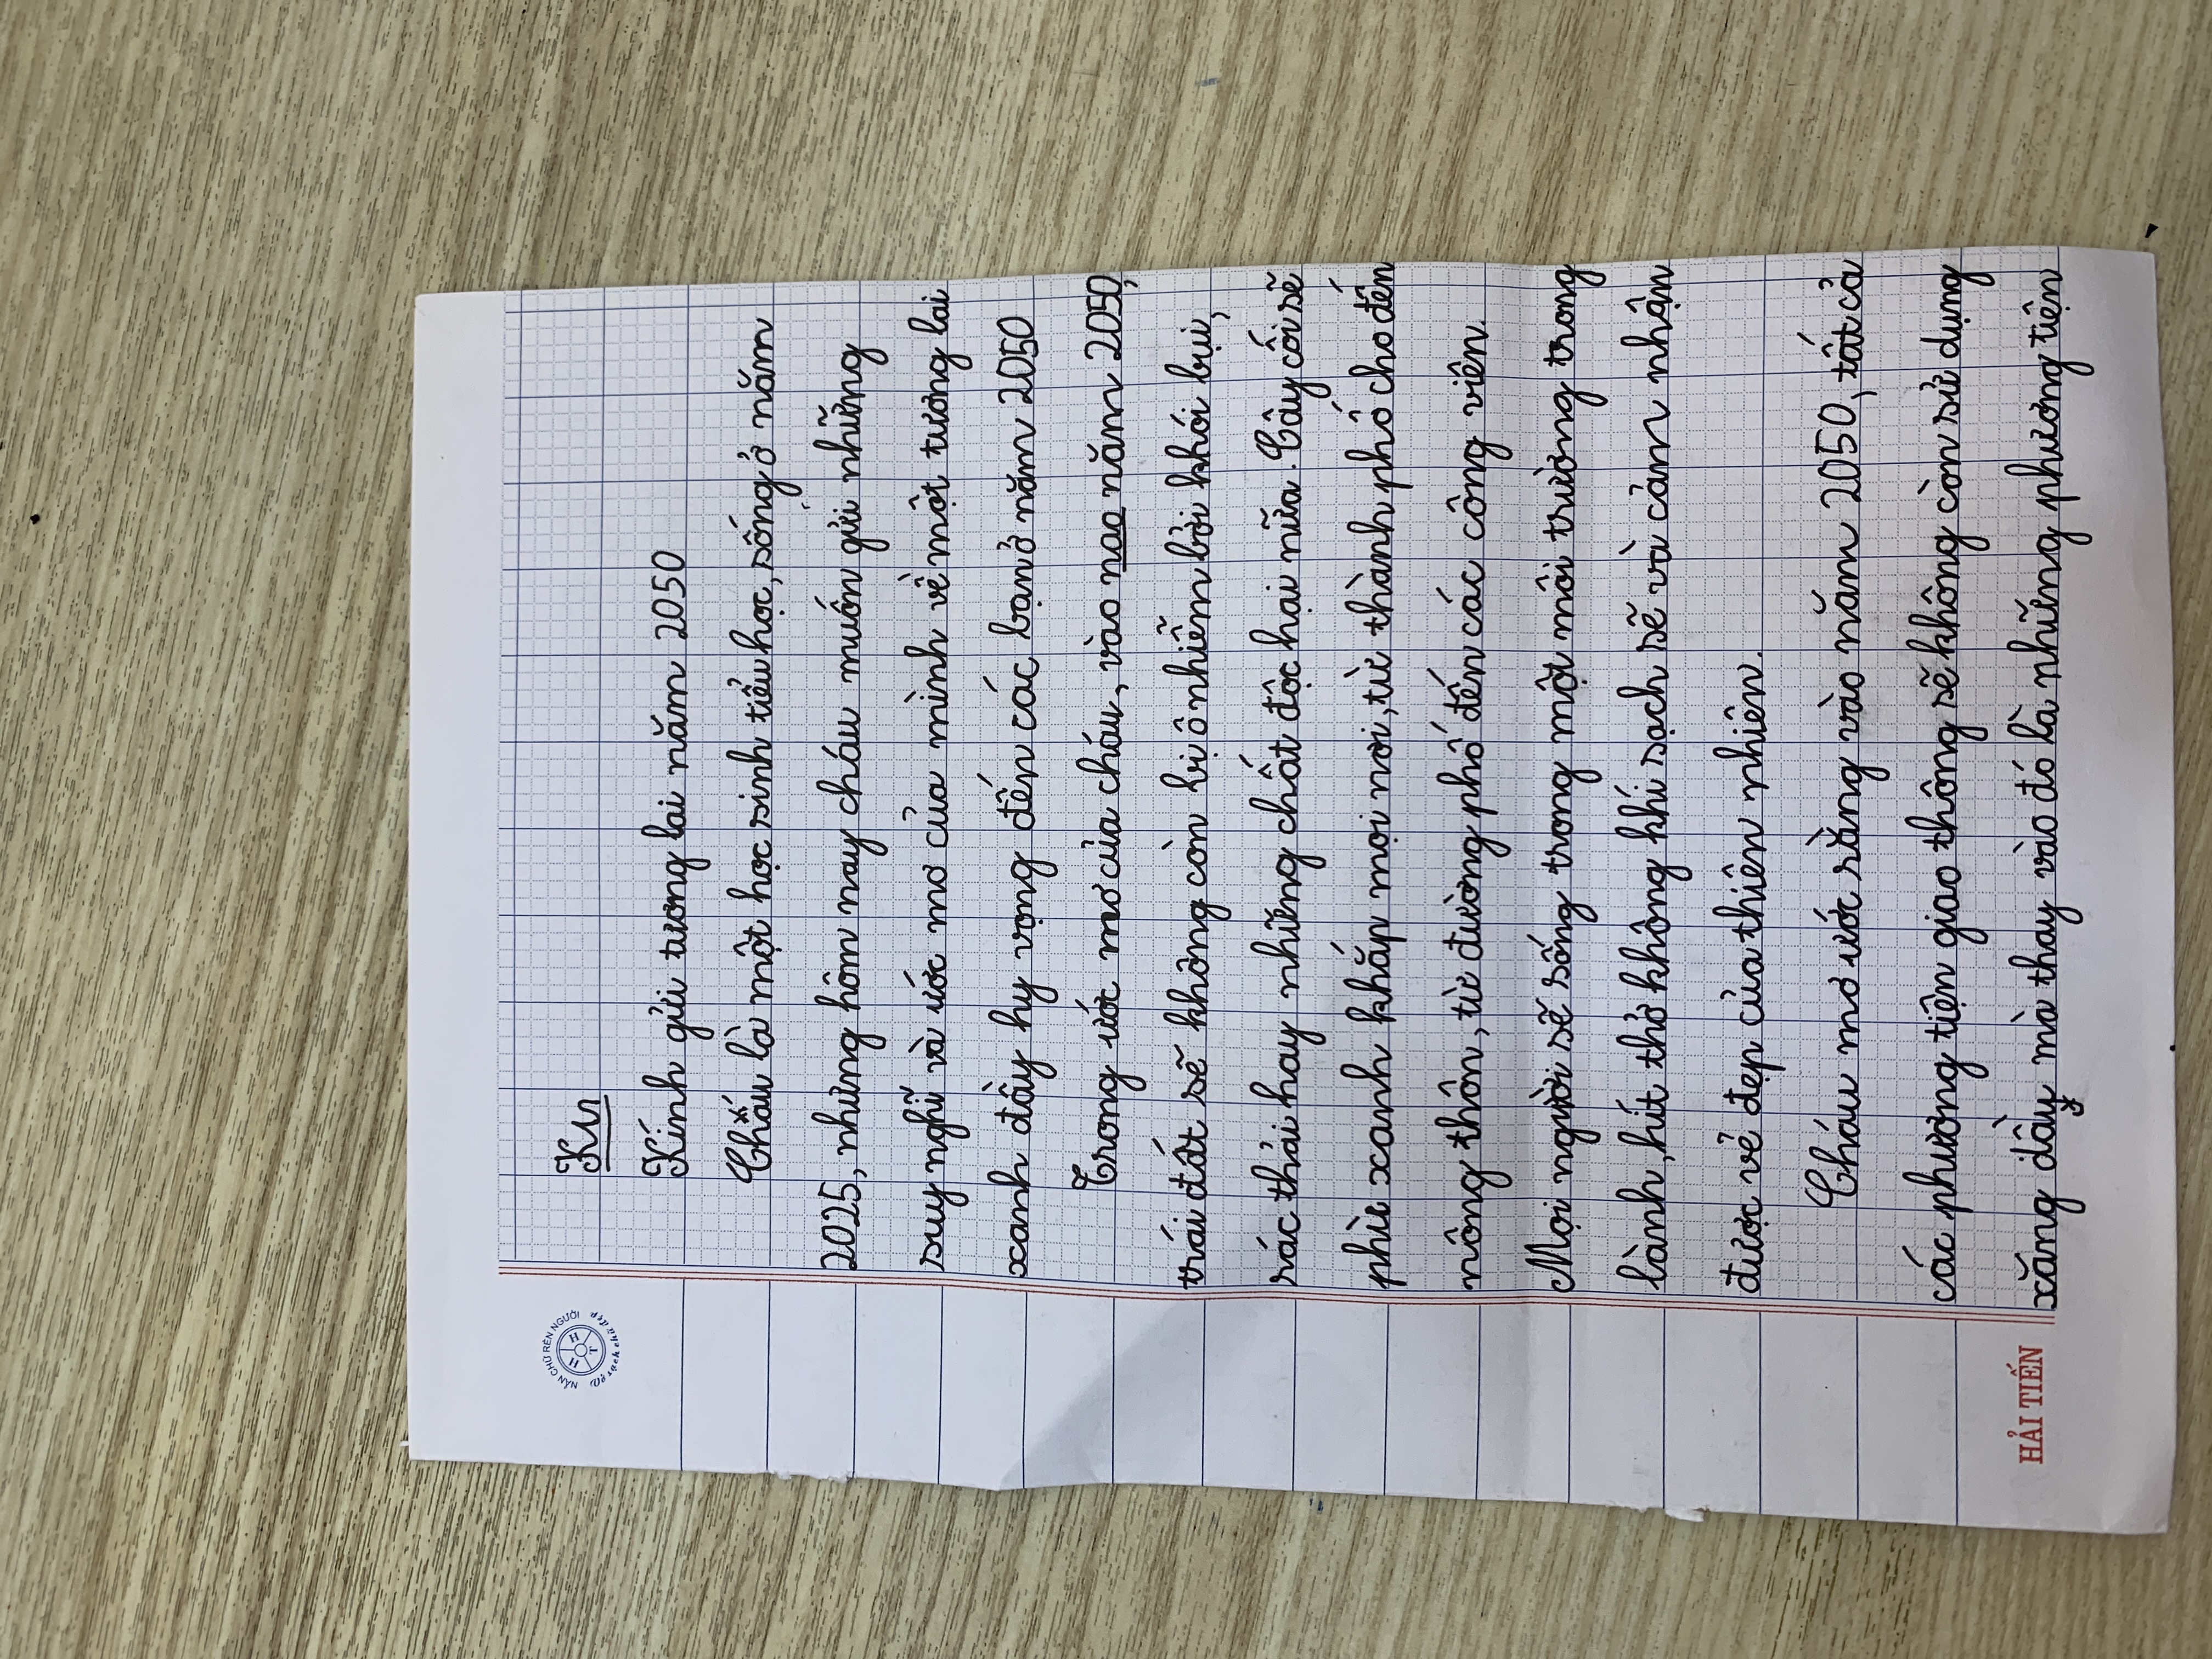 NẮN CHỮ RÈN NGƯỜI
Vở sạch chữ đẹp
H H T
Kn
Kính gửi tương lai năm 2050
Cháu là một học sinh tiểu học, sống ở năm
2025, nhưng hôm nay cháu muốn gửi những
suy nghĩ và ước mơ của mình về một tương lai
xanh đầy hy vọng đến các bạn ở năm 2050
Trong ước mơ của cháu, vào nao năm 2050,
trái đất sẽ không còn bị ô nhiễm bởi khói bụi,
rác thải hay những chất độc hại nữa. Cây cối sẽ
phủ xanh khắp mọi nơi, từ thành phố cho đến
nông thôn, từ đường phố đến các công viên.
Mọi người sẽ sống trong một môi trường trong
lành, hít thở không khí sạch sẽ và cảm nhận
được vẻ đẹp của thiên nhiên.
Cháu mơ ước rằng vào năm 2050, tất cả
các phương tiện giao thông sẽ không còn sử dụng
xăng dầu mà thay vào đó là những phương tiện
HẢI TIẾN